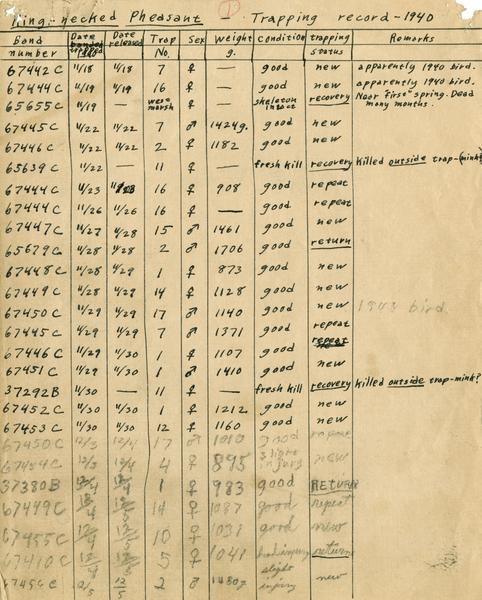 Ring-necked Pheasant — Trapping record - 1940
Band number | Date trapped 1940 | Date released | Trap No. | Sex | Weight g. | condition | trapping status | Remarks
67442 C 11/18 11/18 7 ♀ — good new apparently 1940 bird.
67444 C 11/19 11/19 16 ♀ — good new apparently 1940 bird.
65655 C 11/19 — west marsh ♀ — skeleton intact recovery Near "first" spring. Dead many months.
67445 C 11/22 11/22 7 ♂ 1424g. good new
67446 C 11/22 11/22 2 ♀ 1182 good new
65639 C 11/22 — 11 ♀ — fresh kill recovery killed outside trap-(mink?
67444 C 11/23 11/23 16 ♀ 908 good repeat
67444 C 11/26 11/26 16 ♀ — good repeat
67447 C 11/27 11/28 15 ♂ 1461 good new
65679 C 11/28 11/28 2 ♂ 1706 good return
67448 C 11/28 11/29 1 ♀ 873 good new
67449 C 11/28 11/29 14 ♀ 1128 good new
67450 C 11/29 11/29 17 ♂ 1140 good new bird
67445 C 11/29 11/29 7 ♂ 1371 good repeat
67446 C 11/29 11/30 1 ♀ 1107 good repeat
67451 C 11/29 11/30 1 ♂ 1410 good new
37292 B 11/30 — 11 ♀ — fresh kill recovery killed outside trap-mink?
67452 C 11/30 11/30 1 ♀ 1212 good new
67453 C 11/30 11/30 12 ♀ 1160 good new
67450 C 12/3 12/4 17 ♂ good repeat
67454 C 12/3 12/4 4 ♀ 895 slight injury new
37380 B 12/4 12/4 1 ♀ 983 good RETURN
67449 C 12/4 12/4 14 ♀ 1087 good repeat
67455 C 12/4 12/4 10 ♀ 1038 good new
67410 C 12/4 12/5 5 ♀ 1048 injury return
67456 C 12/5 12/5 2 ♂ slight injury new